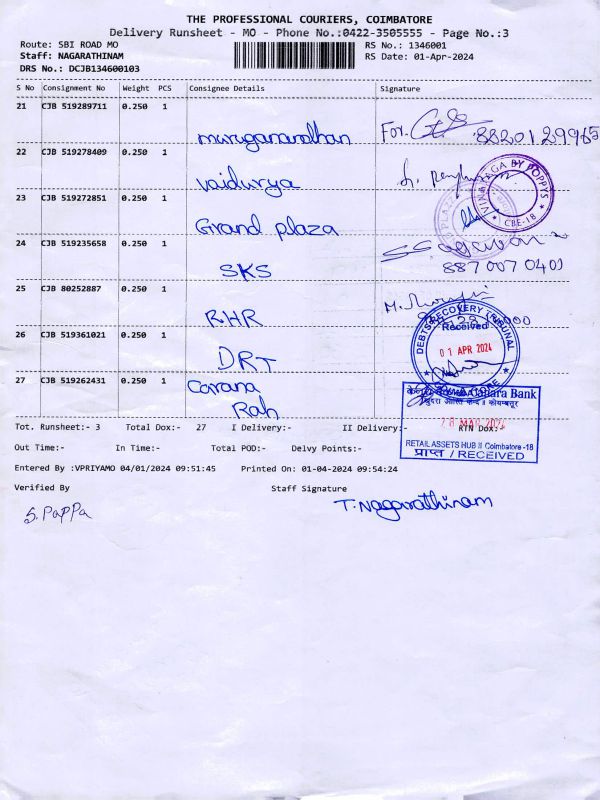 THE PROFESSIONAL COURIERS, COIMBATORE
Delivery Runsheet - MO - Phone No.:0422-3505555 - Page No.:3
Route: SBI ROAD MO
RS No.: 1346001
Staff: NAGARATHINAM
RS Date: 01-Apr-2024
DRS No.: DCJB134600103
S No Consignment No Weight PCS Consignee Details Signature
21 CJB 519289711 0.250 1
muruganandhan For. 8820129965
22 CJB 519278409 0.250 1
vaidurya
VINAYAGA BY POPPYS
CBE-18
23 CJB 519272851 0.250 1
Grand plaza
PLAZA
24 CJB 519235658 0.250 1
SKS 887 007 0401
25 CJB 80252887 0.250 1
RHR
26 CJB 519361021 0.250 1
DRT
DEBTS RECOVERY TRIBUNAL
Received
01 APR 2024
27 CJB 519262431 0.250 1
Canara
Rah
Canara Bank
RETAIL ASSETS HUB II Coimbatore -18
प्राप्त / RECEIVED
Tot. Runsheet:- 3 Total Dox:- 27 I Delivery:- II Delivery:- RTN Dox:-
Out Time:- In Time:- Total POD:- Delvy Points:-
Entered By :VPRIYAMO 04/01/2024 09:51:45 Printed On: 01-04-2024 09:54:24
Verified By Staff Signature
S. PaPPa T. Nagarathinam